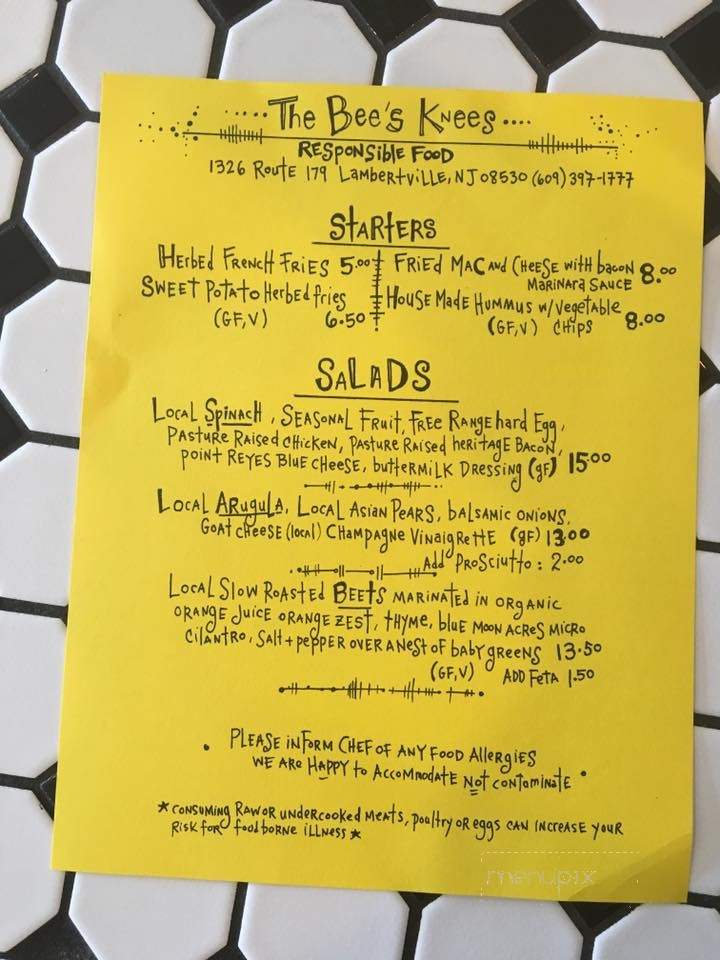 The Bee's Knees
Responsible Food
1326 Route 179 Lambertville, NJ 08530 (609) 397-1777
Starters
Herbed French Fries 5.00
Sweet Potato Herbed fries
(GF,V) 6.50
Fried Mac and Cheese with bacon 8.00
Marinara Sauce
House Made Hummus w/vegetable
(GF,V) Chips 8.00
Salads
Local Spinach, Seasonal Fruit, Free Range hard Egg,
Pasture Raised Chicken, Pasture Raised heritage Bacon,
Point Reyes Blue Cheese, buttermilk Dressing (gf) 15.00
Local Arugula, Local Asian Pears, balsamic onions,
Goat cheese (local) Champagne Vinaigrette (gf) 13.00
Add Prosciutto: 2.00
Local Slow Roasted Beets marinated in organic
orange juice orange zest, thyme, blue moon acres micro
cilantro, salt + pepper over a nest of baby greens 13.50
(GF,V) Add Feta 1.50
• Please inform chef of any food Allergies
We are Happy to Accommodate Not contaminate •
*consuming raw or undercooked meats, poultry or eggs can increase your
risk for foodborne illness*
menupix